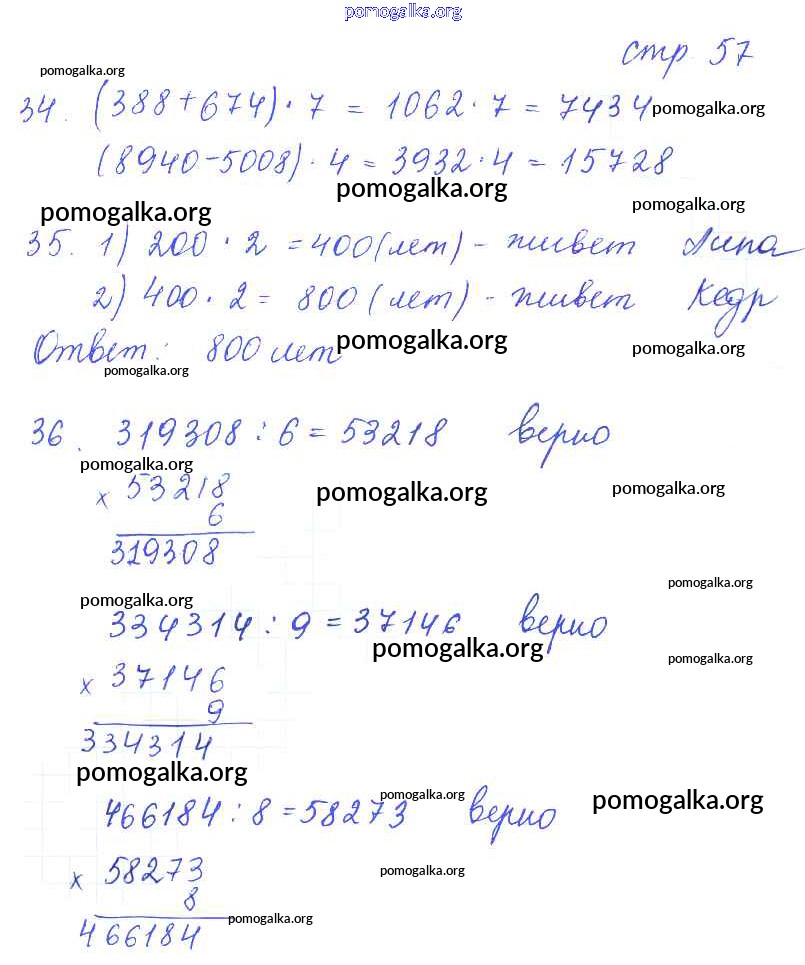 pomogalka.org
стр 57
pomogalka.org
34. (388+674)·7 = 1062·7 = 7434 pomogalka.org
(8940-5008)·4 = 3932·4 = 15728
pomogalka.org
pomogalka.org
pomogalka.org
35. 1) 200·2 = 400 (лет) - живет Липа
2) 400·2 = 800 (лет) - живет Кедр
Ответ: 800 лет pomogalka.org
pomogalka.org
pomogalka.org
36. 319308:6 = 53218 верно
pomogalka.org
x 53218
pomogalka.org
pomogalka.org
6
319308
pomogalka.org
pomogalka.org
334314:9 = 37146 верно
pomogalka.org
pomogalka.org
x 37146
9
334314
pomogalka.org
pomogalka.org
pomogalka.org
466184:8 = 58273 верно
x 58273
pomogalka.org
8
pomogalka.org
466184